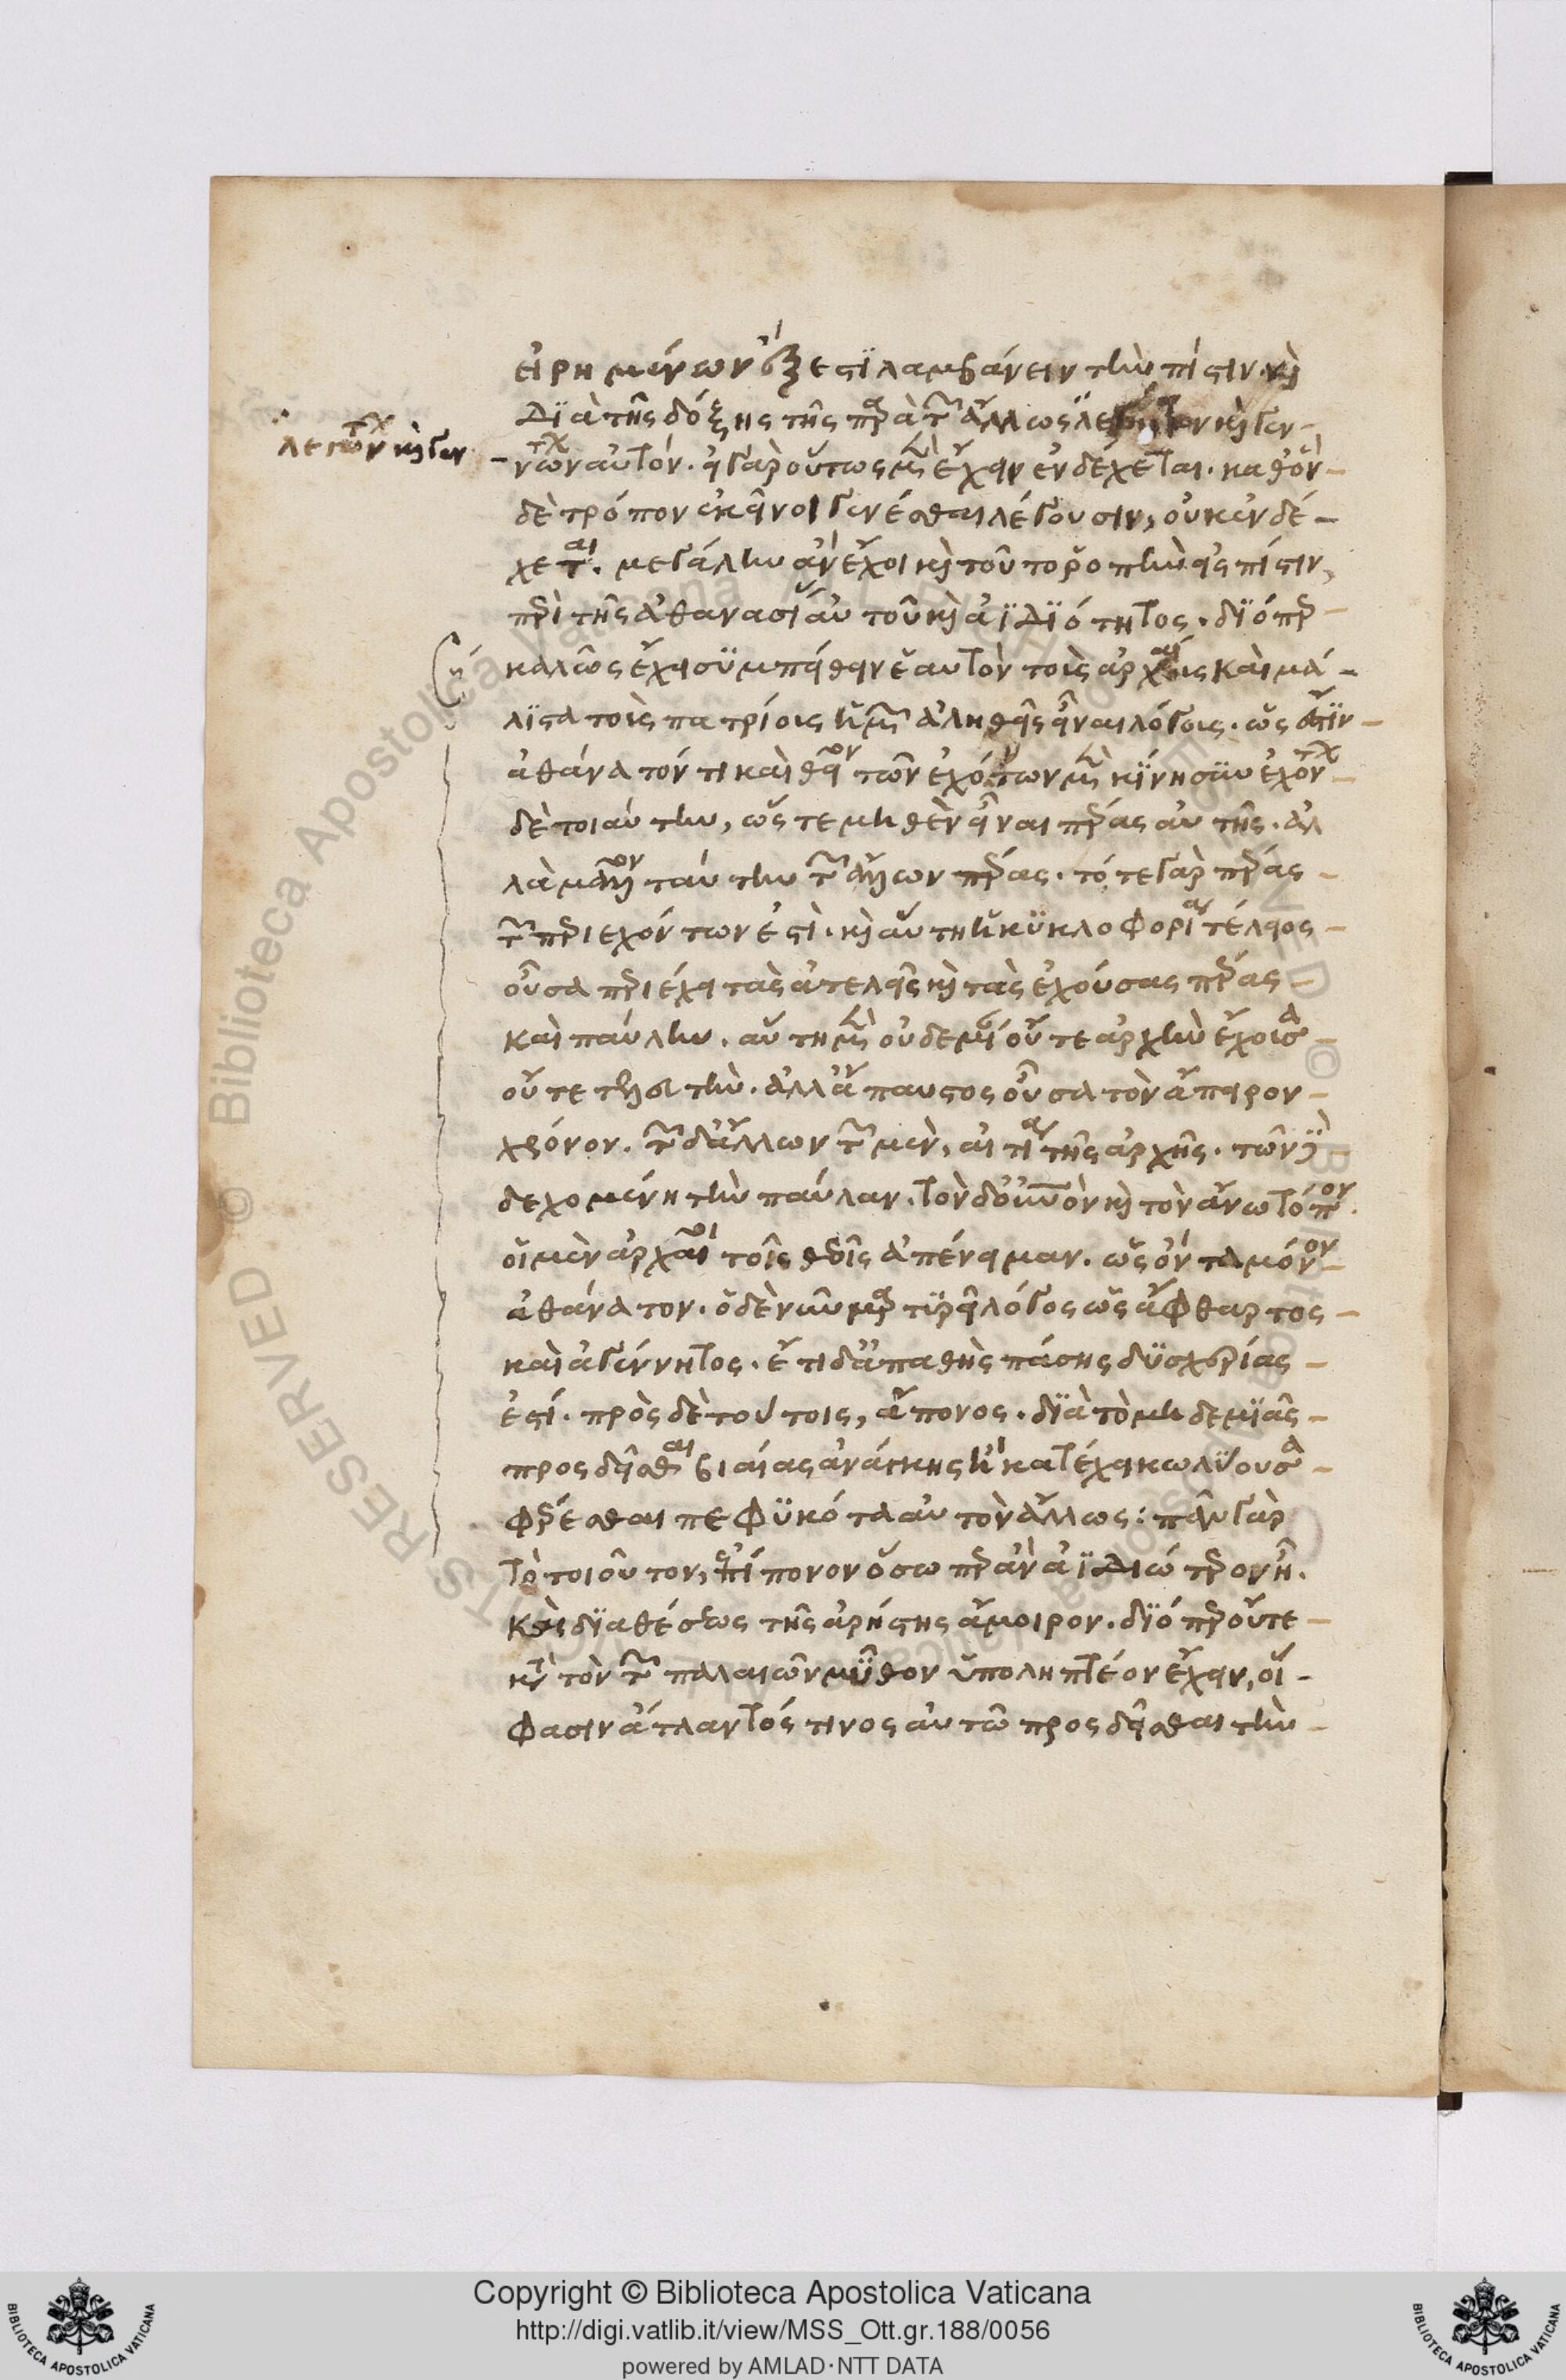 εἰρημένων ἔξεστι λαμβάνειν τὴν πίστιν καὶ
διὰ τῆς δόξης τῆς παρὰ τῶν ἄλλως λεγόντων καὶ γεν
λεγόντων καὶ γεν
νώντων αὐτόν. εἰ γὰρ οὕτως μὲν ἔχειν ἐνδέχεται. καθ' ὃν
δὲ τρόπον ἐκεῖνοι γενέσθαι λέγουσιν, οὐκ ἐνδέ
χεται. μεγάλην ἂν ἔχοι καὶ τοῦτο ῥοπὴν εἰς πίστιν,
περὶ τῆς ἀθανασίας αὐτοῦ καὶ ἀϊδιότητος. διόπερ
καλῶς ἔχει συμπείθειν ἑαυτὸν τοὺς ἀρχαίους καὶ μά
λιστα τοὺς πατρίους ἡμῶν ἀληθεῖς εἶναι λόγους. ὡς ἔστιν
ἀθάνατόν τι καὶ θεῖον τῶν ἐχόντων μὲν κίνησιν ἐχόντων
δὲ τοιαύτην, ὥστε μηθὲν εἶναι πέρας αὐτῆς. ἀλ
λὰ μᾶλλον ταύτην τῶν ἄλλων πέρας. τό τε γὰρ πέρας
τῶν περιεχόντων ἐστὶ. καὶ αὕτη ἡ κυκλοφορία τέλειος
οὖσα περιέχει τὰς ἀτελεῖς καὶ τὰς ἐχούσας πέρας
καὶ παύλην. αὐτὴ μὲν οὐδεμίαν οὔτε ἀρχὴν ἔχουσα
οὔτε τελευτὴν. ἀλλ' ἄπαυστος οὖσα τὸν ἄπειρον
χρόνον. τῶν δ' ἄλλων τῶν μὲν, αἰτία τῆς ἀρχῆς. τῶν δὲ
δεχομένη τὴν παῦλαν. τὸν δ' οὐρανὸν καὶ τὸν ἄνω τόπον.
οἱ μὲν ἀρχαῖοι τοῖς θεοῖς ἀπένειμαν. ὡς ὄντα μόνον
ἀθάνατον. ὁ δὲ νῦν μαρτυρεῖ λόγος ὡς ἄφθαρτος
καὶ ἀγέννητος. ἔτι δ' ἀπαθὴς πάσης δυσχερείας
ἐστί. πρὸς δὲ τούτοις, ἄπονος. διὰ τὸ μηδεμιᾶς
προσδεῖσθαι βιαίας ἀνάγκης ἣ κατέχει κωλύουσα
φέρεσθαι πεφυκότα αὐτὸν ἄλλως: πᾶν γὰρ
τὸ τοιοῦτον, ἐπίπονον ὅσω περ ἂν ἀϊδιώτερον ᾖ.
καὶ διαθέσεως τῆς ἀρίστης ἄμοιρον. διόπερ οὔτε
κατὰ τὸν τῶν παλαιῶν μῦθον ὑποληπτέον ἔχειν, οἵ
φασιν ἄτλαντός τινος αὐτῶ προσδεῖσθαι τὴν
Copyright © Biblioteca Apostolica Vaticana
http://digi.vatlib.it/view/MSS_Ott.gr.188/0056
powered by AMLAD·NTT DATA